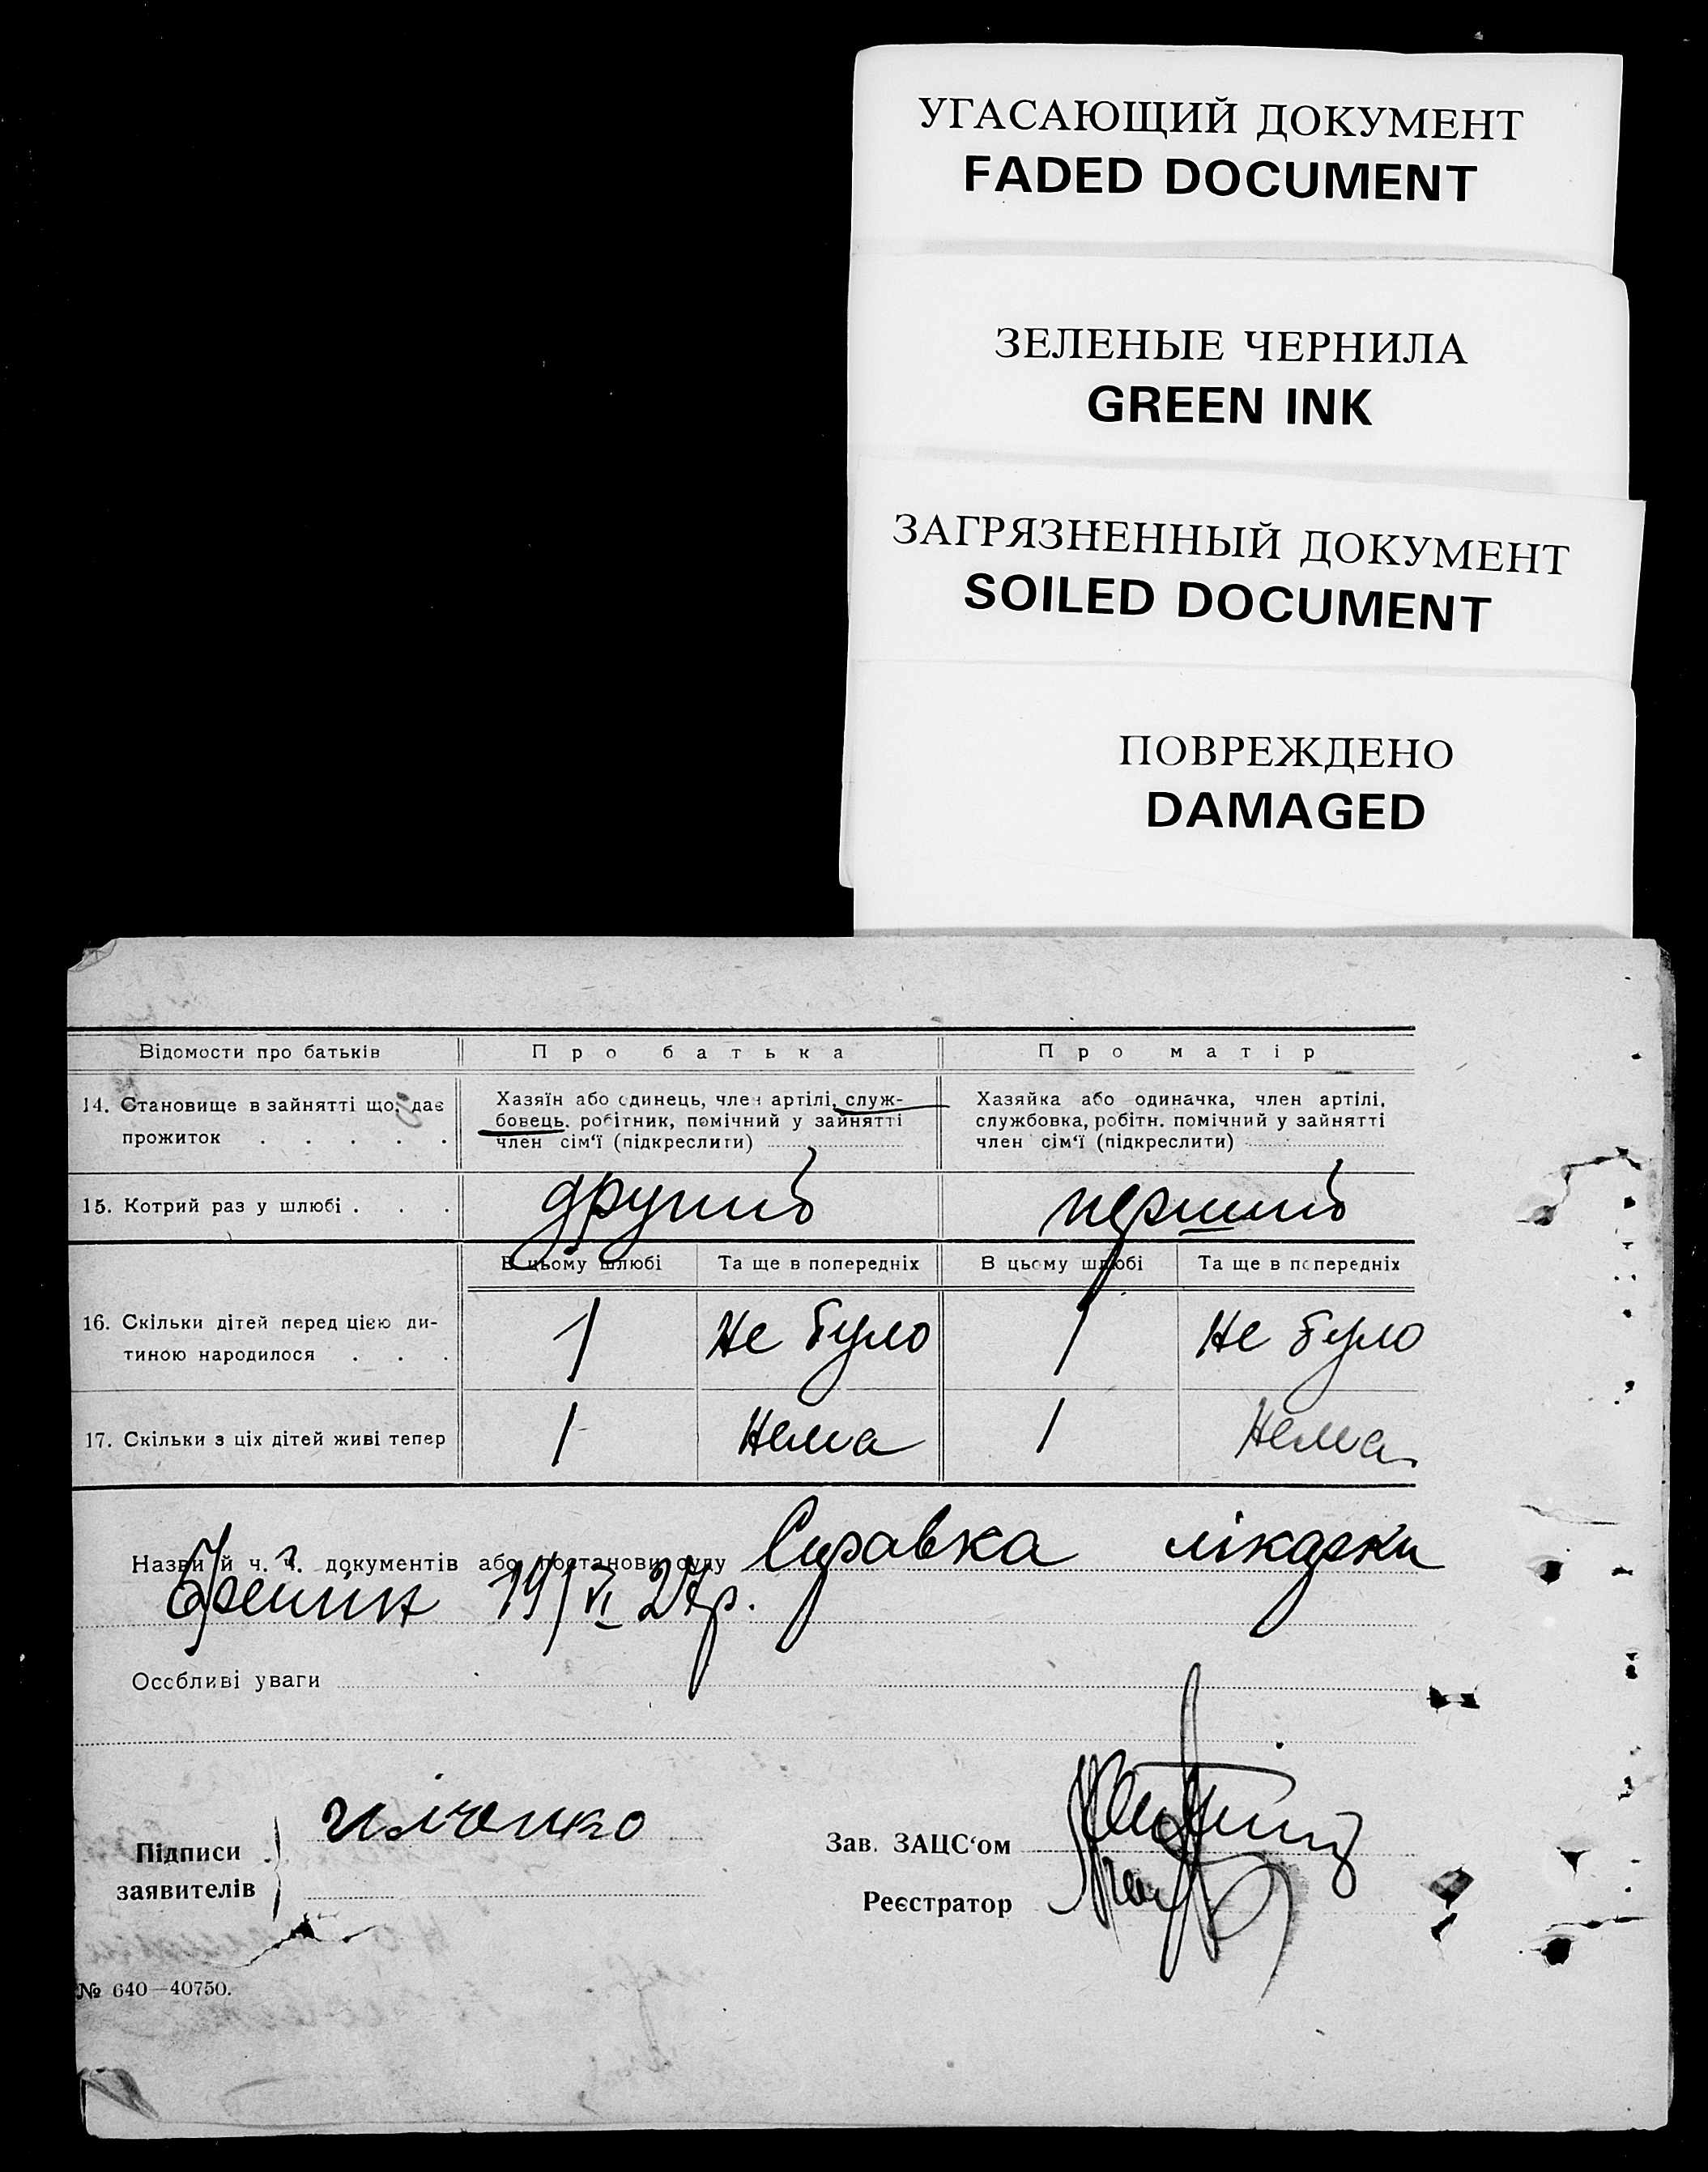 УГАСАЮЩИЙ ДОКУМЕНТ
FADED DOCUMENT
ЗЕЛЕНЫЕ ЧЕРНИЛА
GREEN INK
ЗАГРЯЗНЕННЫЙ ДОКУМЕНТ
SOILED DOCUMENT
ПОВРЕЖДЕНО
DAMAGED
Відомости про батьків
Про батька
Про матір
14. Становище в зайнятті що дає
прожиток . . . . .
Хазяїн або єдинець, член артілі, служ-
бовець, робітник, помічний у зайнятті
член сім‘ї (підкреслити)
Хазяйка або одиначка, член артілі,
службовка, робітн. помічний у зайнятті
член сім‘ї (підкреслити)
15. Котрий раз у шлюбі . . .
другий
перший
В цьому шлюбі
Та ще в попередніх
В цьому шлюбі
Та ще в попередніх
16. Скільки дітей перед цією ди-
тиною народилося . . .
1
Не було
1
Не було
17. Скільки з ціх дітей живі тепер
1
Нема
1
Нема
Назви й ч. ч. документів або постанови суду Справка лікарки
19/VI 27р.
Особливі уваги
Підписи
заявителів
Ильченко
Зав. ЗАЦС‘ом
Реєстратор
№ 640—40750.